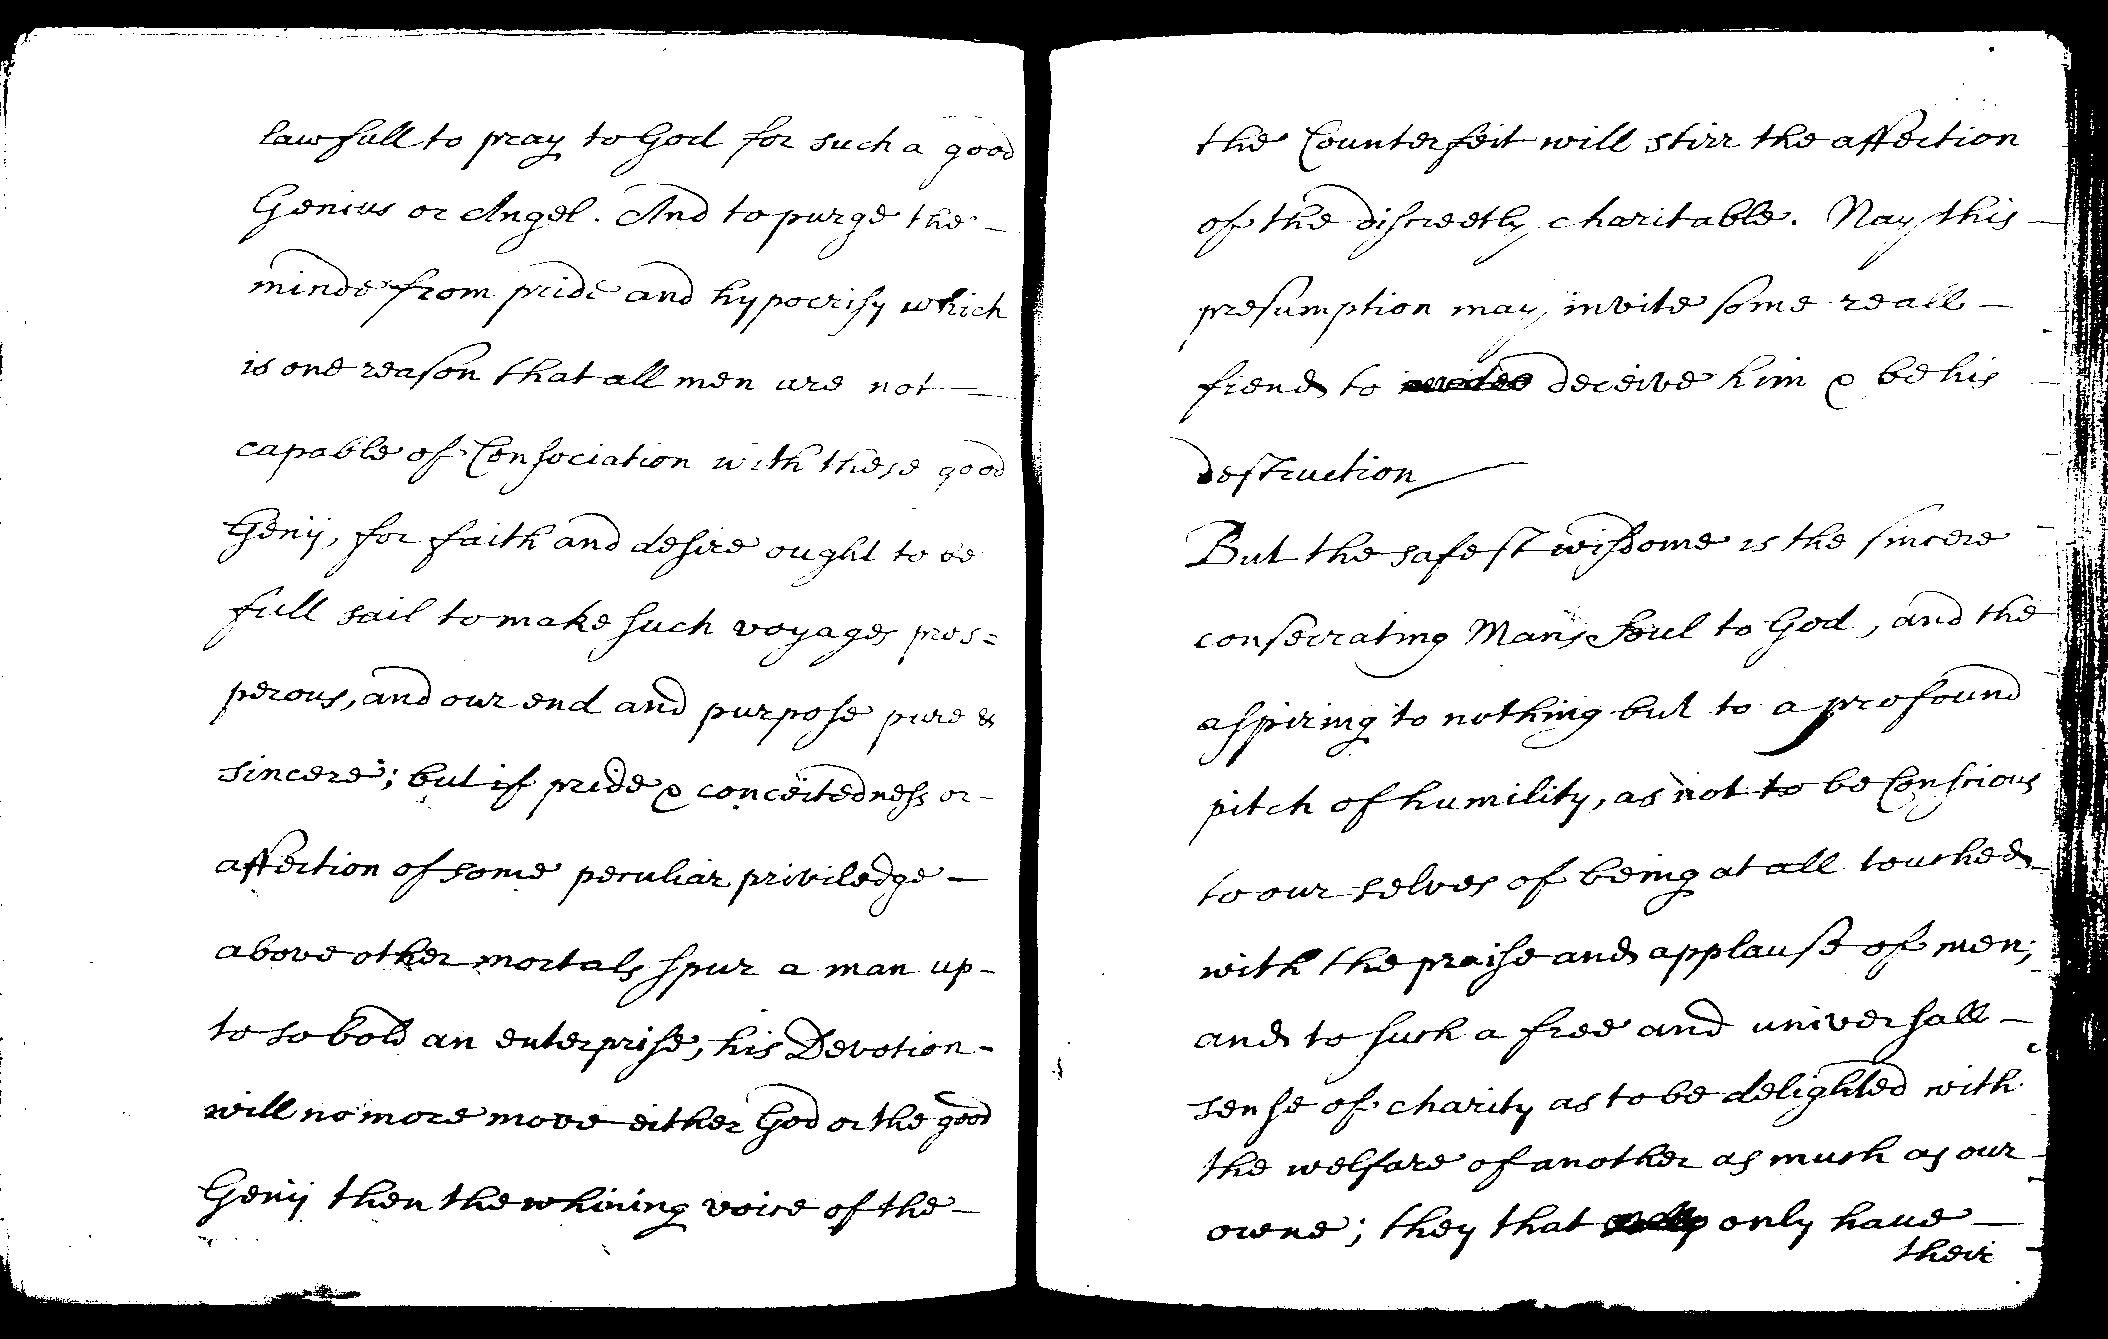 lawfull to pray to God for such a good
Genius or Angel. And to purge the
minde from pride and hypocrisy which
is one reason that all men are not
capable of Consociation with these good
Genij, for faith and desire ought to be
full sail to make such voyages pros=
perous, and our end and purpose pure &
sincere; but if pride & conceitedness or
affection of some peculiar priviledge
above other mortals spur a man up
to so bold an enterprise, his Devotion
will no more move either God or the good
Genij then the whining voice of the
the Counterfeit will stirr the affection
of the discreetly charitable. Nay this
presumption may invite some reall
fiend to deceive him & be his
destruction
But the safest wisdome is the sincere
consecrating Mans Soul to God, and the
aspiring to nothing but to a profound
pitch of humility, as not to be Conscious
to our selves of being at all touched
with the praise and applause of men;
and to such a free and universall
sense of charity as to be delighted with
the welfare of another as much as our
owne; they that only have
their